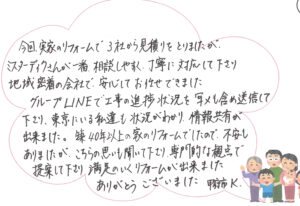 今回、実家のリフォームで3社から見積りをとりましたが、
ミスターデイクさんが一番 相談しやすく、丁寧に対応して下さり
地域密着の会社で、安心してお任せできました。
グループLINEで工事の進捗状況を写メも含め送信して
下さり、東京にいる私達も状況がわかり、情報共有が
出来ました。築40年以上の家のリフォームでしたので、不安も
ありましたが、こちらの思いも聞いて下さり、専門的な観点で
提案して下さり 満足のいくリフォームが出来ました。
ありがとうございました K.